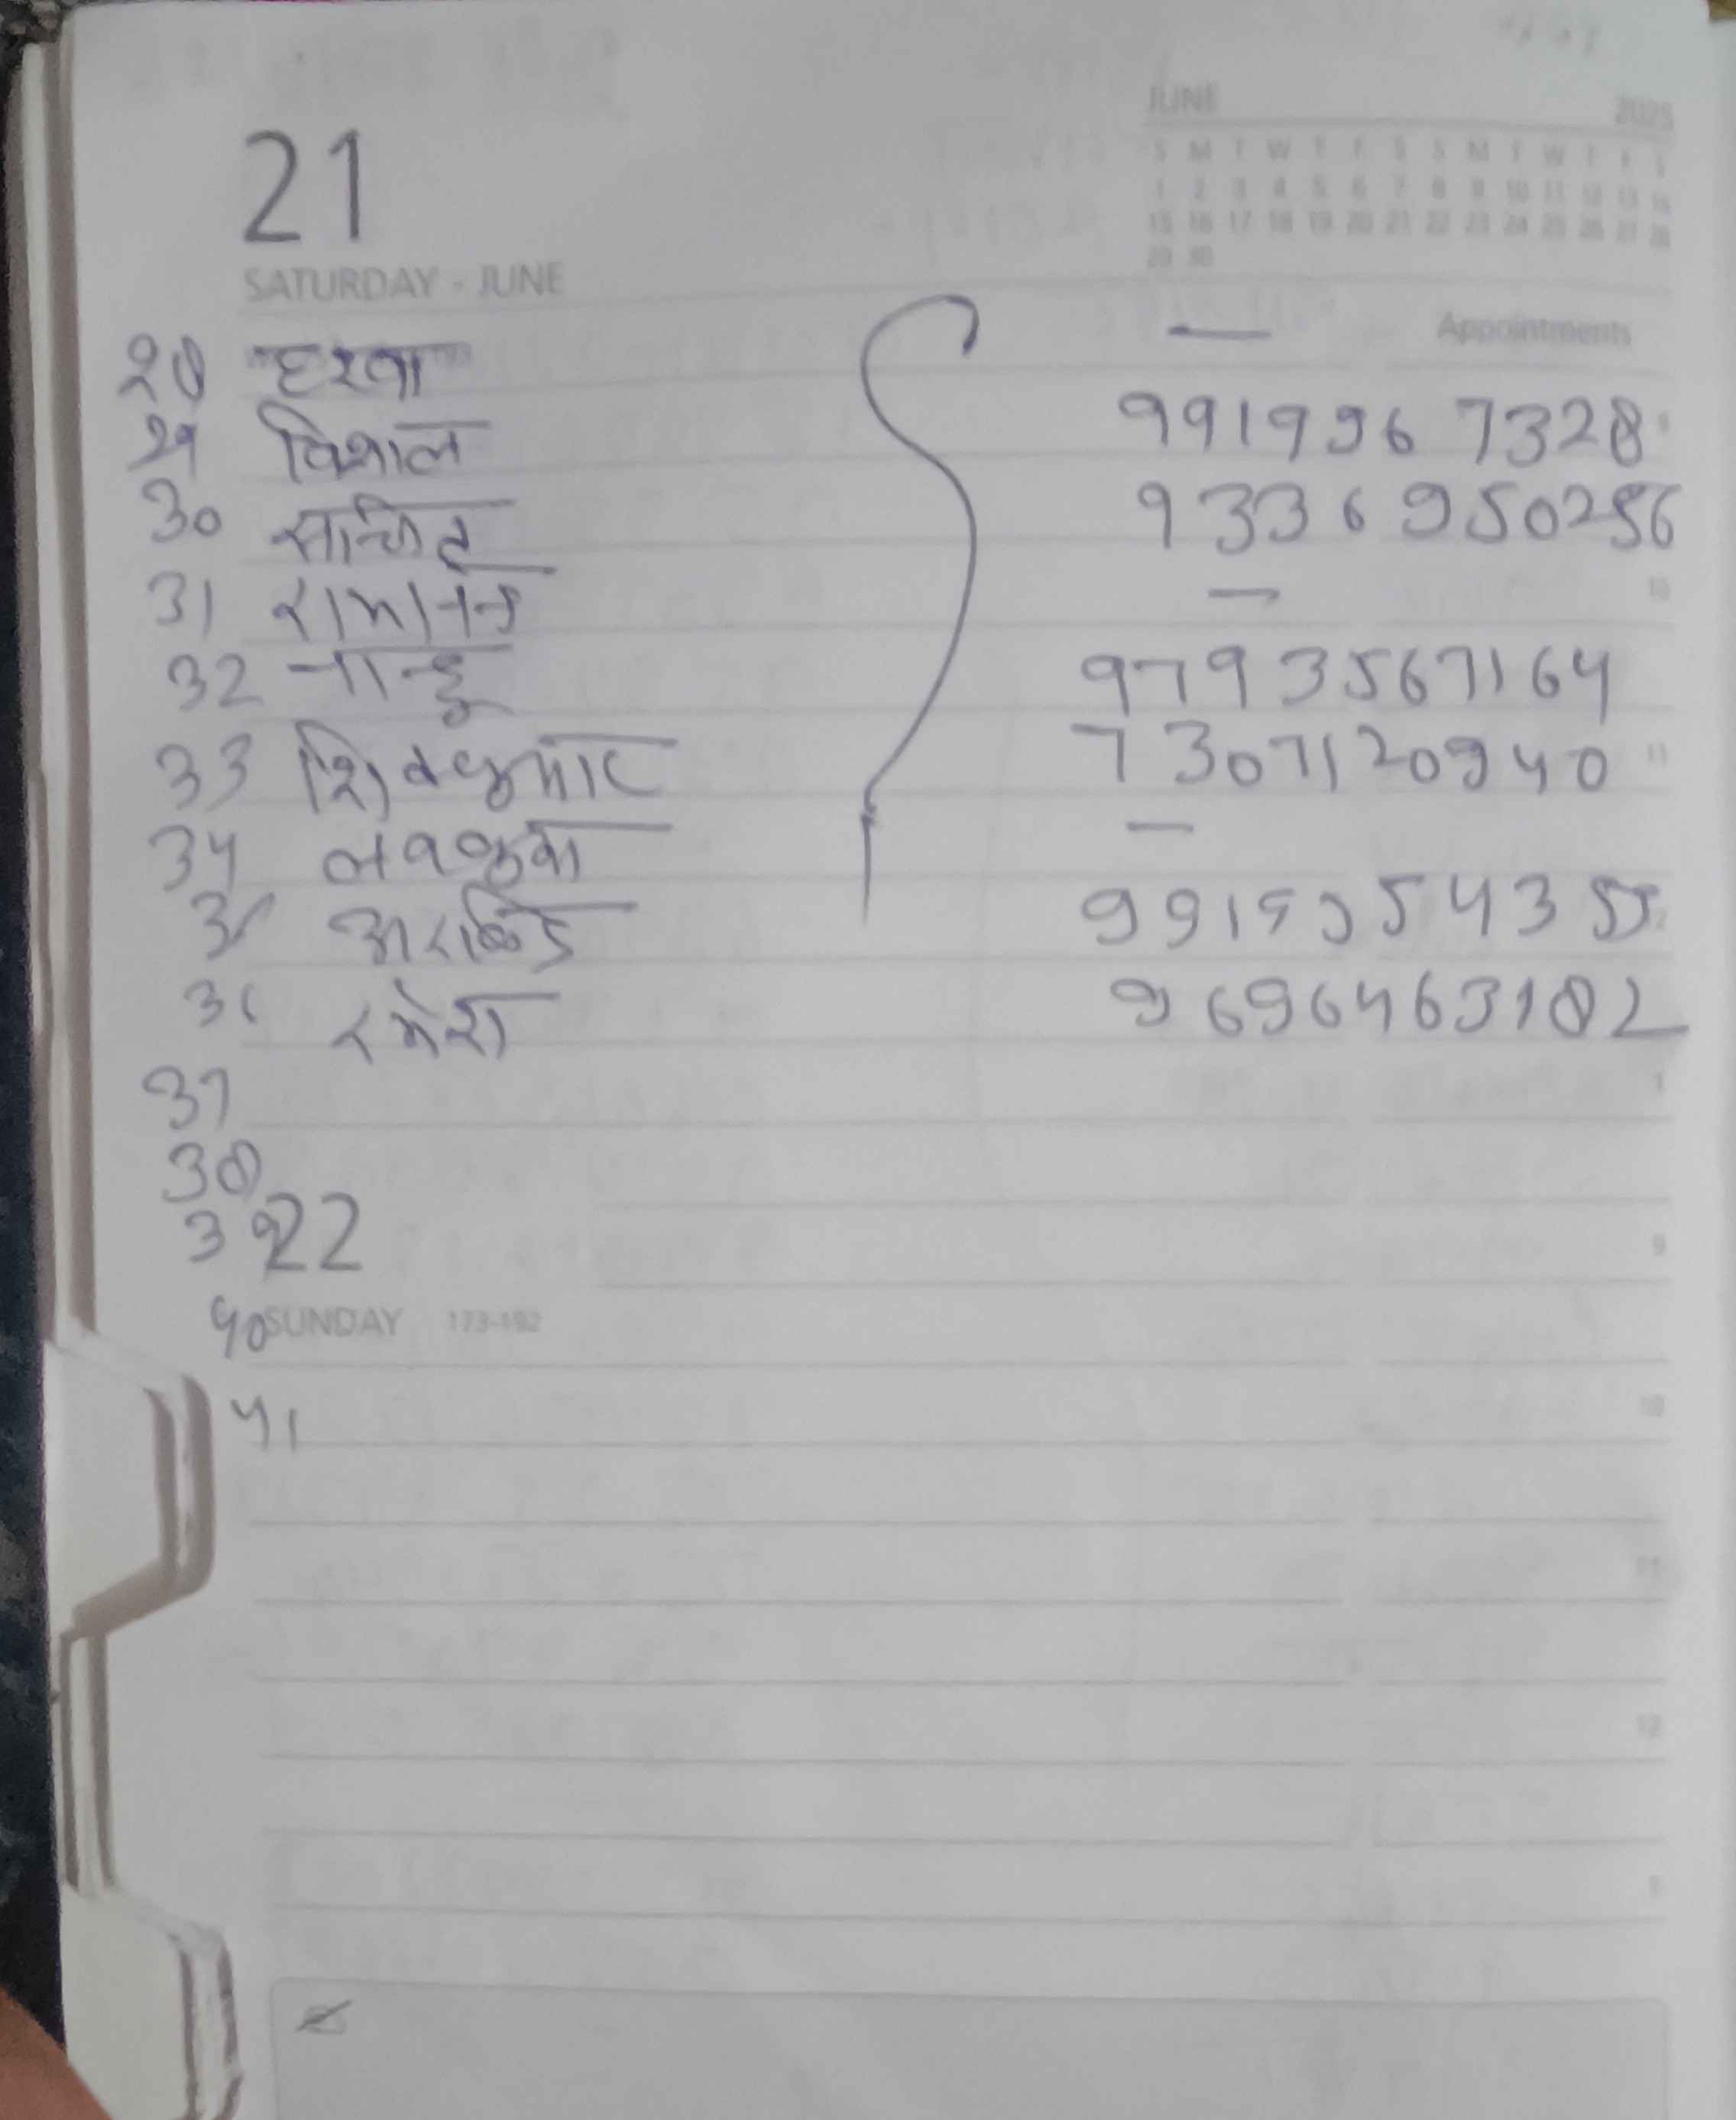 JUNE 2025
S M T W T F S S M T W T F S
1 2 3 4 5 6 7 8 9 10 11 12 13 14
15 16 17 18 19 20 21 22 23 24 25 26 27 28
29 30
21
SATURDAY - JUNE
Appointments
28 —
29 विशाल 9919967328
30 9336950256
31 —
32 नान्हू 9793567164
33 शिवकुमार 7307120940
34 लवकुश —
35 9919554355
36 रमेश 9696463182
37
38
39
22
40
SUNDAY 173-192
41